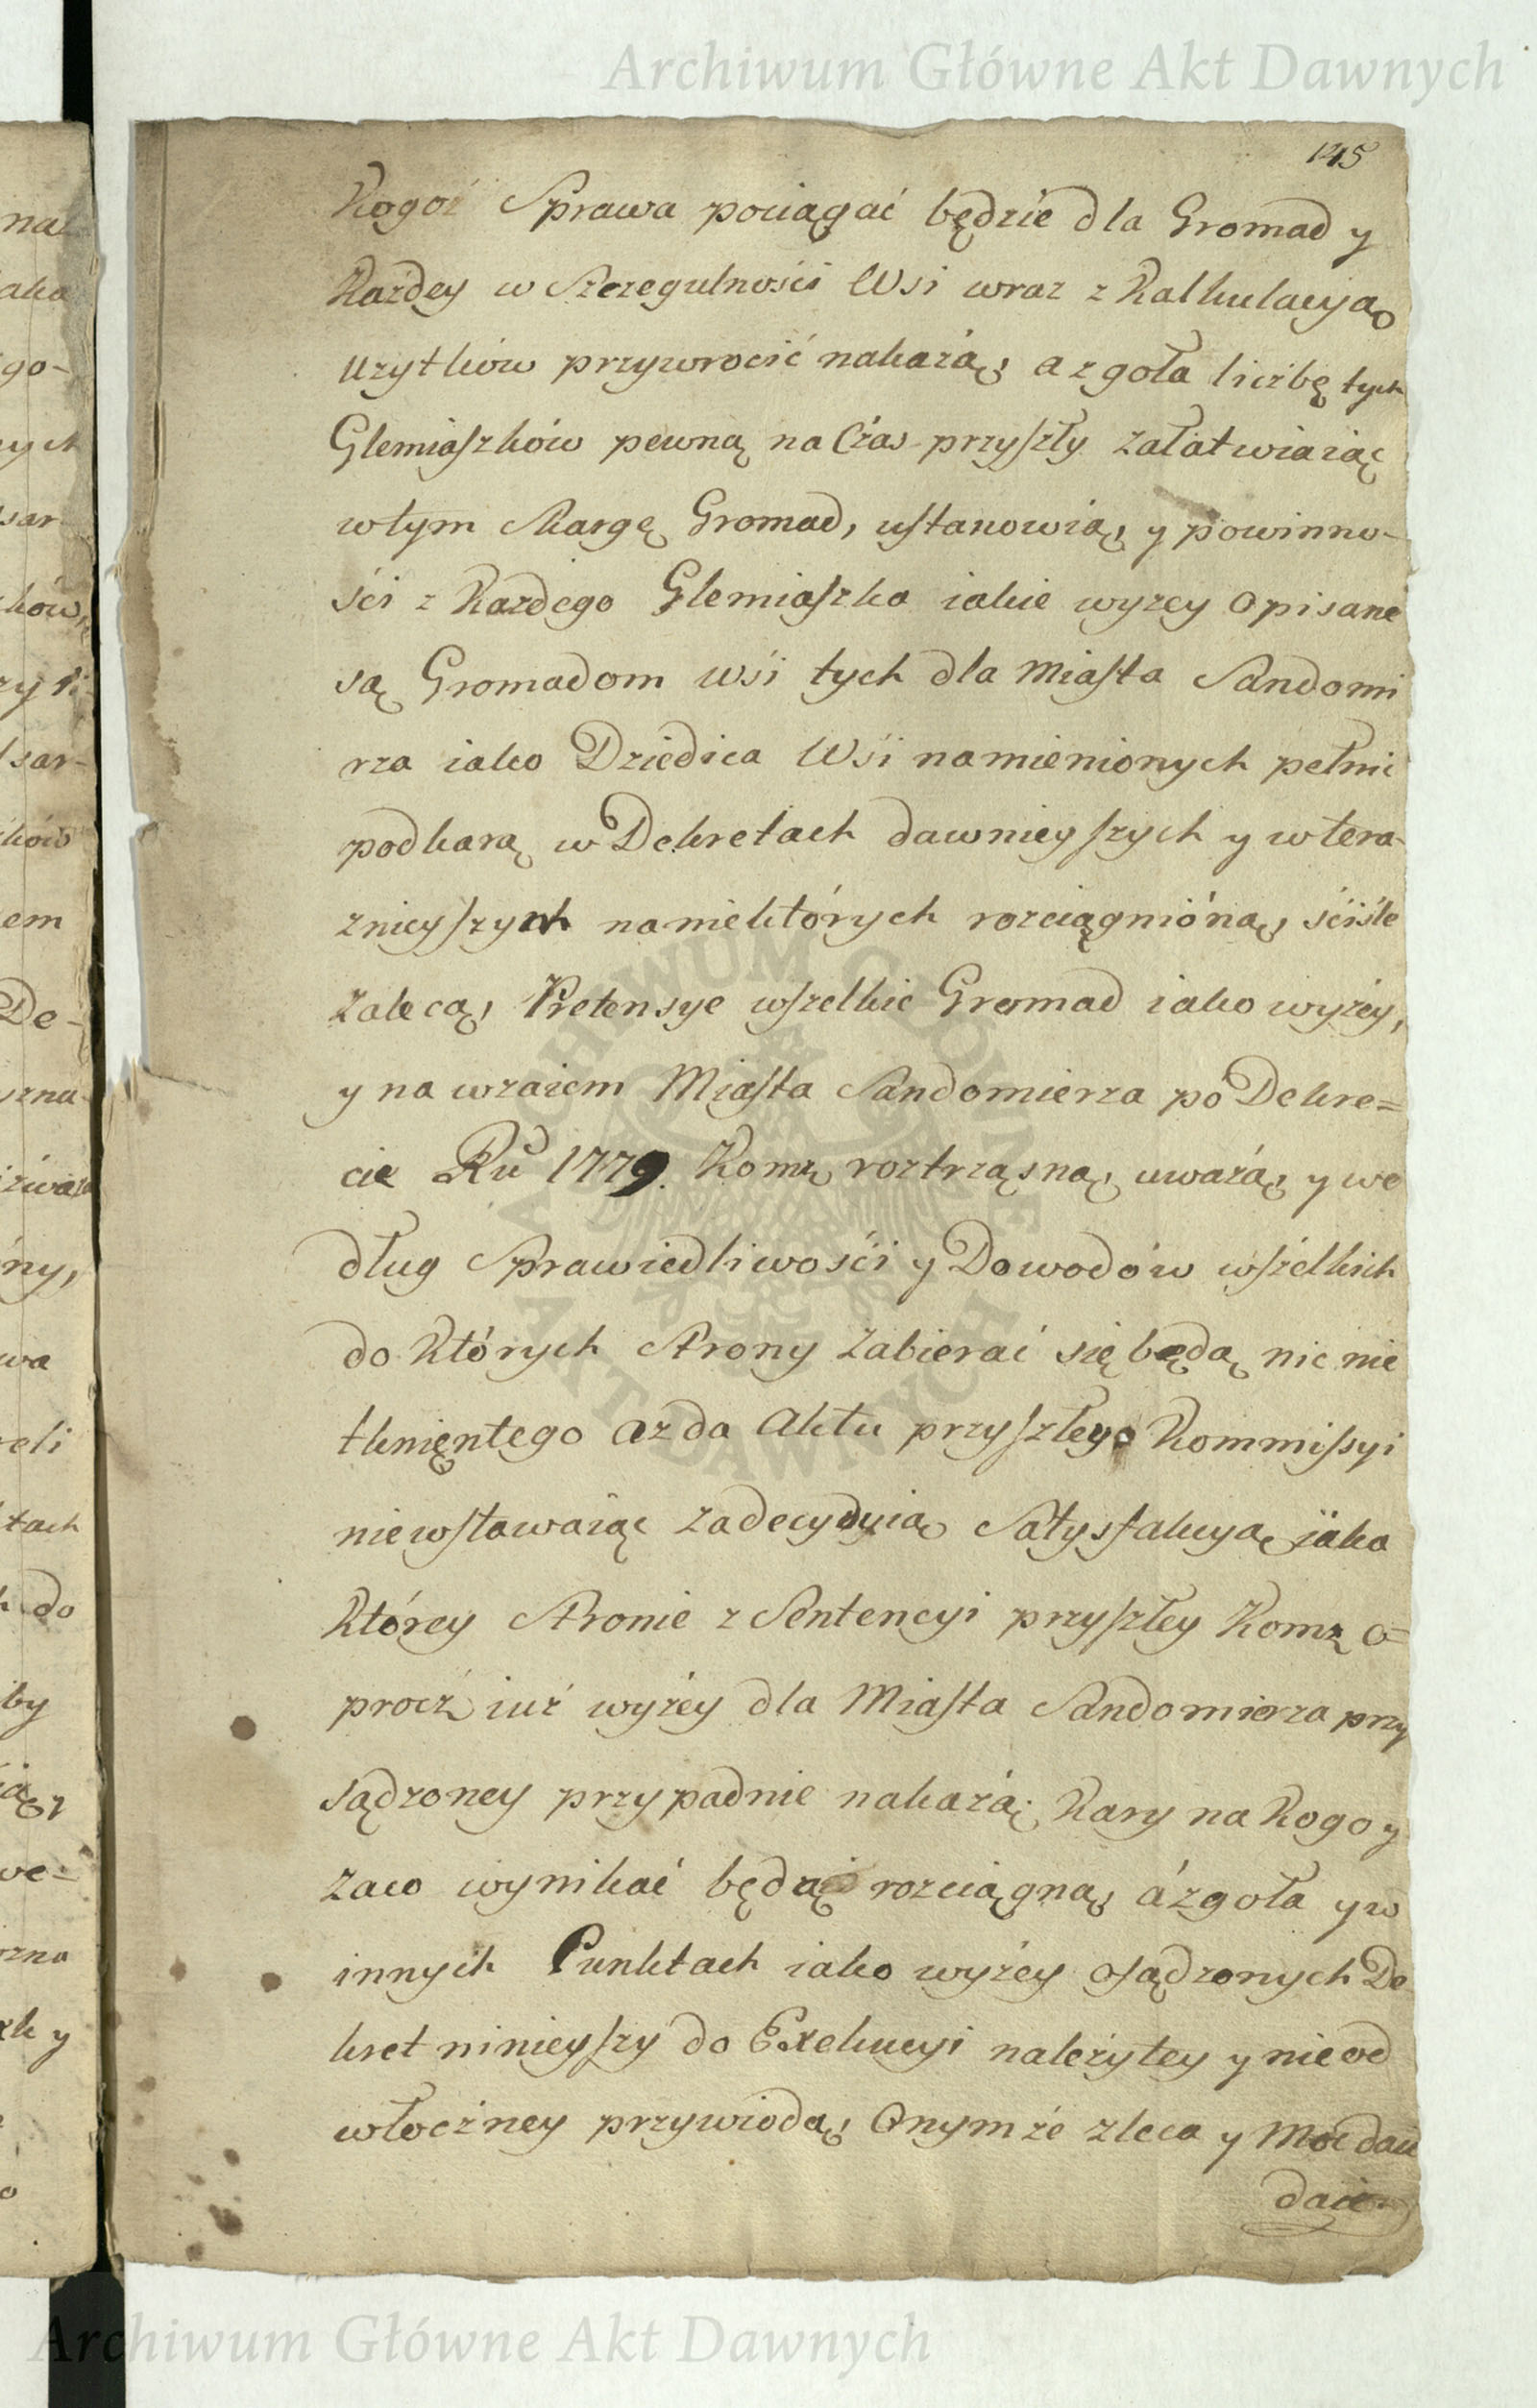 Archiwum Główne Akt Dawnych
145
Kogoż Sprawa pociągać będzie dla Gromad y
Każdey w Szczegulności Wsi wraz z Kalkulacyą
użytków przywrocić nakażą, a zgoła liczbę tych
Glemiaszków pewną na Czas przyszły załatwiaiąc
w tym Skargę Gromad, ustanowią, y powinno-
ści z Każdego Glemiaszka iakie wyżey opisane
są Gromadom Wsi tych dla Miasta Sandomi
rza iako Dziedica Wsi namienionych pełnić
pod karą w Dekretach dawnieyszych y w tera-
znieyszych na niektórych rozciągnióną, ściśle
zalecą, Pretensye wszelkie Gromad iako wyżey,
y na wzaiem Miasta Sandomierza po Dekre=
cie Ru 1779. Komz roztrząsną, uważą, y we
dług Sprawiedliwości y Dowodów wszelkich
do Których Strony zabierać się będą nic nie
tkniętego aż do Aktu przyszłego Kommissyi
niewstawaiąc zadecyduią Satysfakcyą iaka
Którey Stronie z Sentencyi przyszłey Komz o=
procz iuż wyżey dla Miasta Sandomierza przy
sądzoney przypadnie nakażą, Kary na Kogo y
zaco wynikać będą rozciągną, ázgoła y w
innych Punktach iako wyżey osądzonych De
kret ninieyszy do Exekucyi należytey y nieod
włoczney przywiodą, Onymże zleca y Moc daie
daie
Archiwum Główne Akt Dawnych